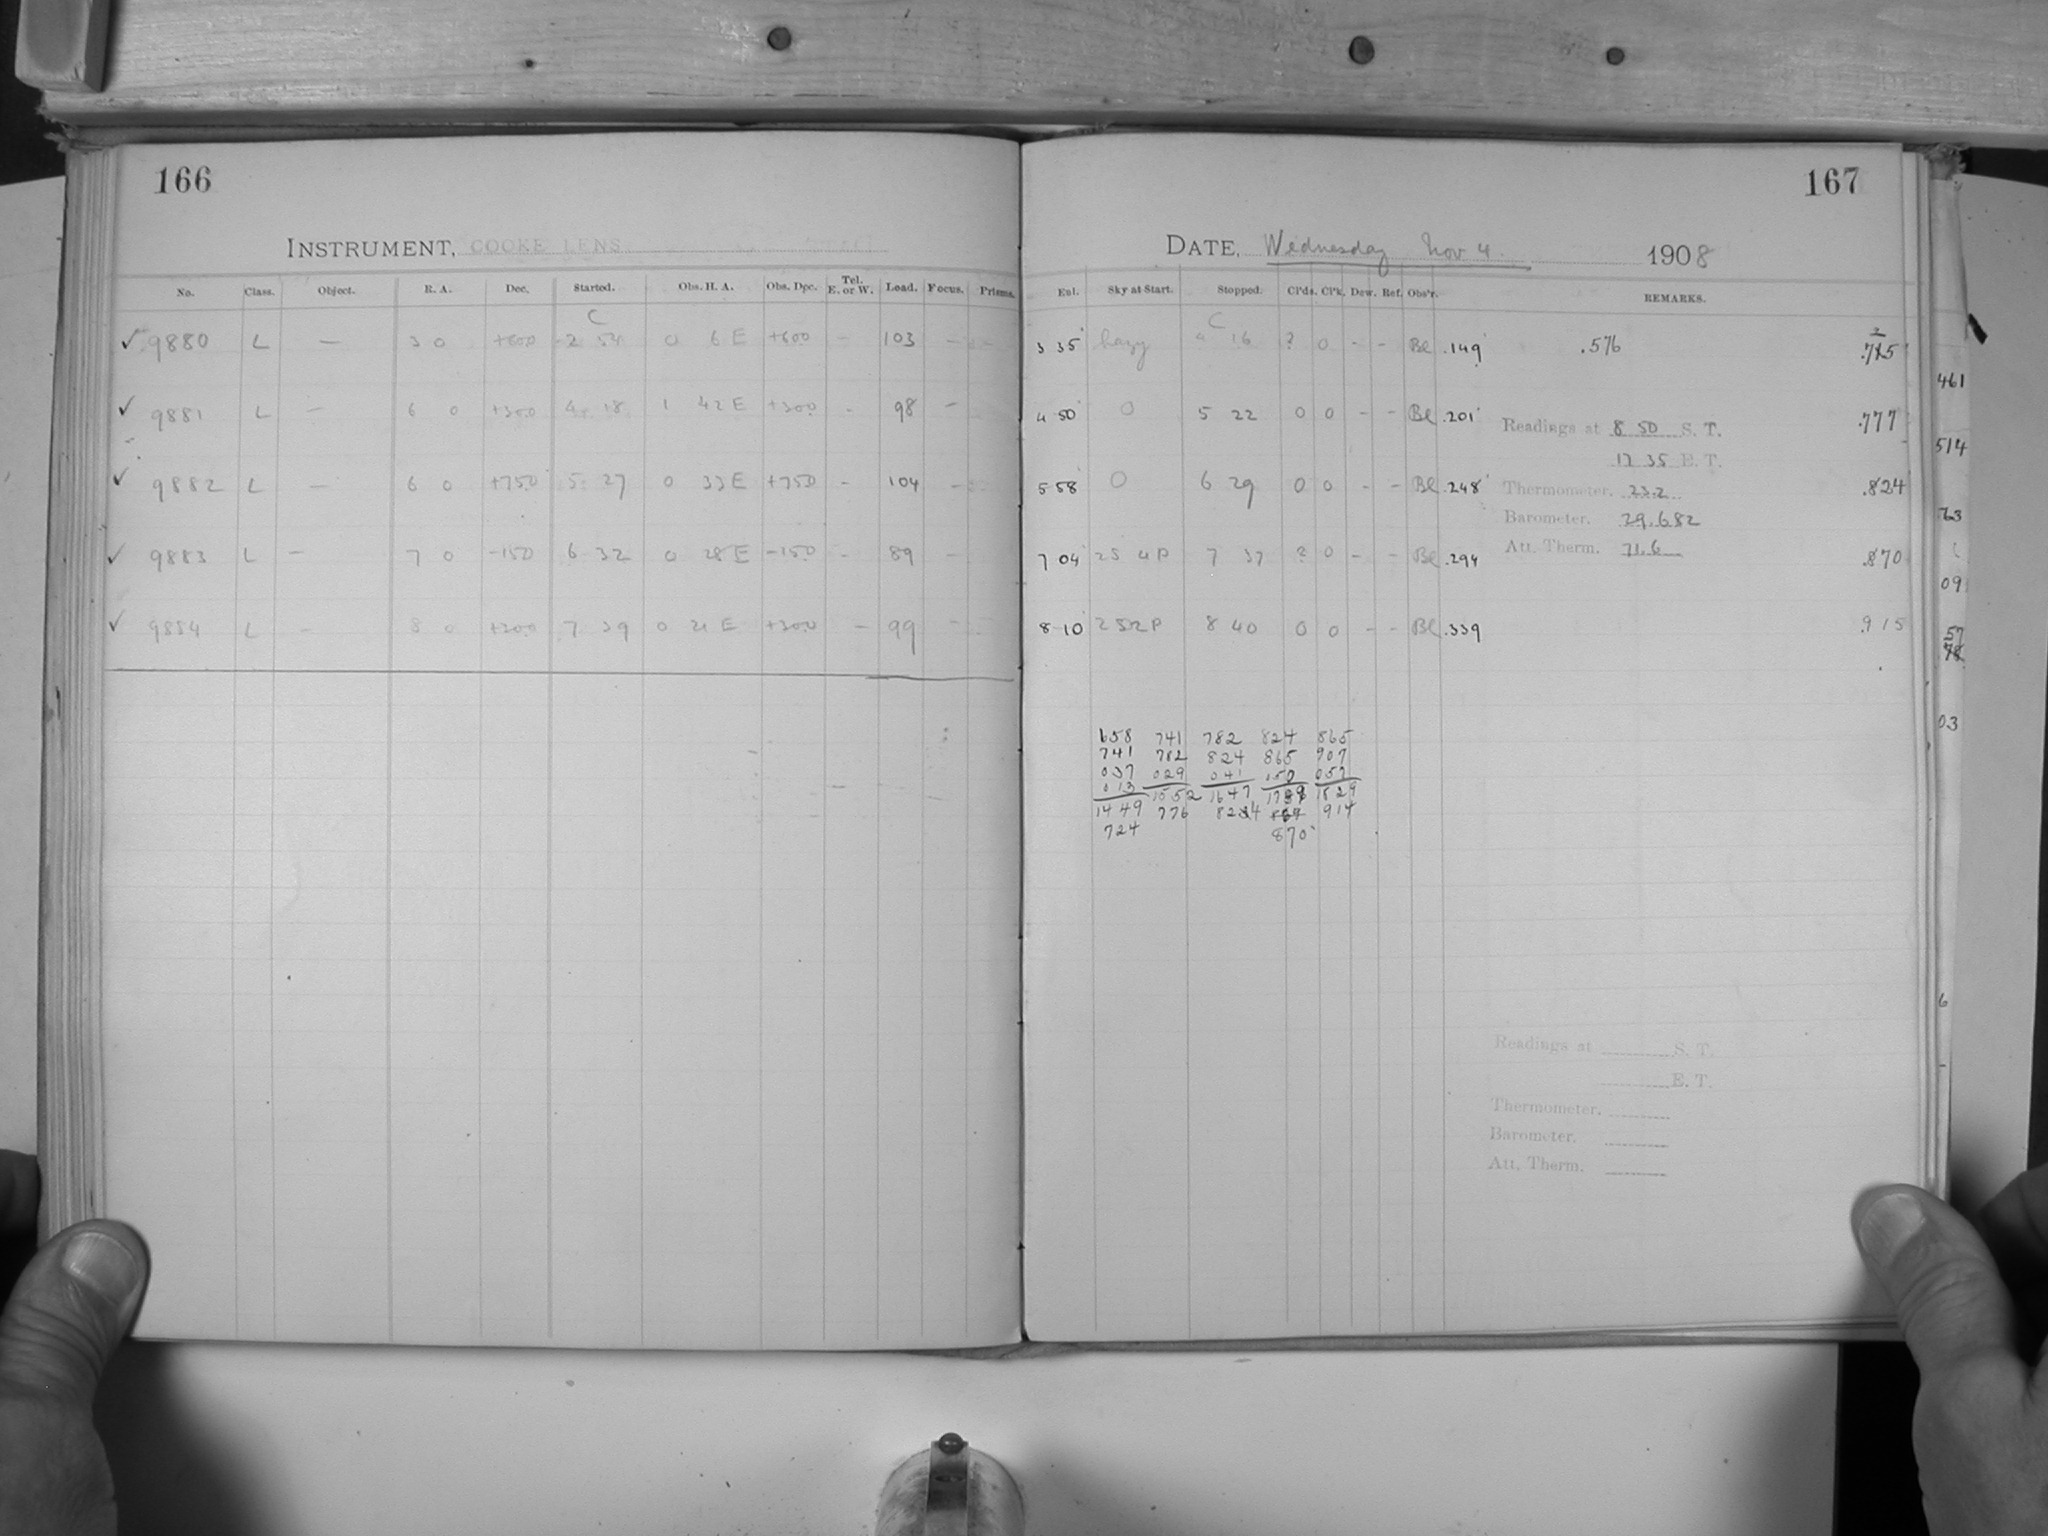 166
INSTRUMENT, COOKE LENS
No. Class. Object. R. A. Dec. Started. Obs. H. A. Obs. Dec. Tel. E. or W. Load. Focus. Prisms.
C
✓ 9880 L — 3 0 +600 2 54 0 6 E +600 - 103 -
✓ 9881 L — 6 0 +300 4 18 1 42 E +300 - 98 -
✓ 9882 L — 6 0 +750 5 27 0 33 E +750 - 104 -
✓ 9883 L — 7 0 -150 6 32 0 28 E -150 - 89 -
✓ 9884 L — 8 0 +300 7 39 0 21 E +300 - 99 -
167
DATE, Wednesday Nov 4. 1908
Ext. Sky at Start. Stopped. Cl'ds. Cl'k. Dew. Ref. Obs'r. REMARKS.
C
3 35 hazy 4 16 ? 0 - - Bl .149 .576 .725
4 50 0 5 22 0 0 - - Bl .201 .777
Readings at 8 50 S. T.
17 35 E. T.
5 58 0 6 29 0 0 - - Bl .248 Thermometer. 23.2 .824
Barometer. 29.682
7 04 25 4P 7 37 ? 0 - - Bl .294 Att. Therm. 71.6 .870
8 10 25 2P 8 40 0 0 - - Bl .339 .915
658 741 782 824 865
741 782 824 865 907
037 029 041 050 057
013 1552 1647 1739 1829
1449 776 824 914
724 870
Readings at S. T.
E. T.
Thermometer.
Barometer.
Att. Therm.
461
514
63
09
57
03
6